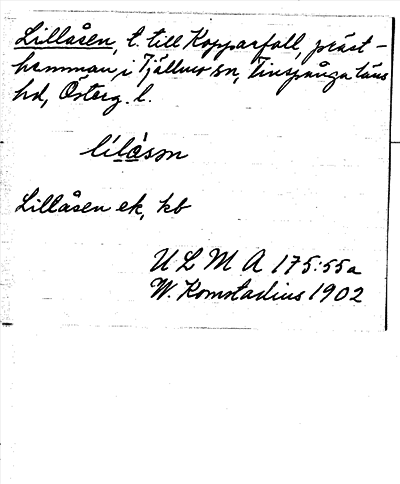 Lillåsen, t. till Kopparfall, präst-
hemman i Tjällmo sn, Finspånga läns
hd, Österg. l.
lílàsən
Lillåsen ek, kb
U L M A 175:55a
W. Komstadius 1902